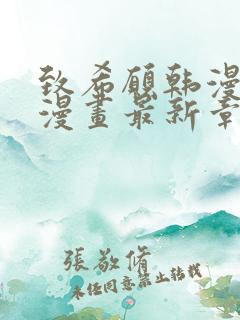 致希願韩漫
漫畫最新章
張敬脩
未经同意禁止转载